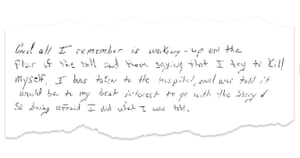 and all I remember is waking-up on the
floor of the cell and them saying that I try to Kill
myself. I was taken to the hospital, and was told it
would be in my best interest to go with the story &
So being afraid I did what I was told.